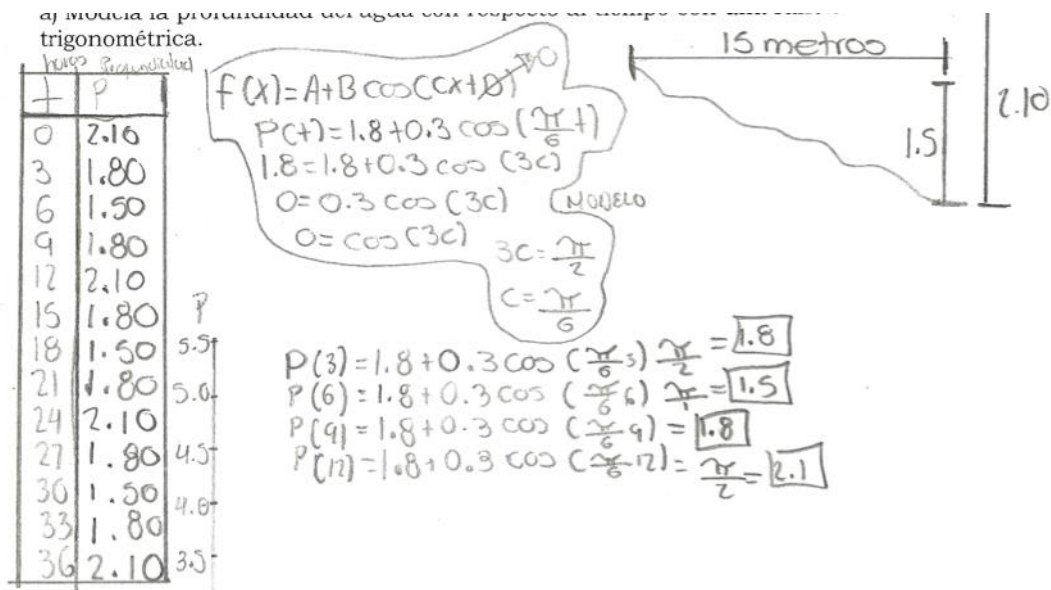 a) Modela la profundidad del agua con respecto al tiempo con una
trigonométrica.
horas Profundidad
t P
0 2.10
3 1.80
6 1.50
9 1.80
12 2.10
15 1.80
18 1.50
21 1.80
24 2.10
27 1.80
30 1.50
33 1.80
36 2.10
f(x)=A+B cos(cx+D) 0
P(t)=1.8+0.3 cos(π/6 t)
1.8=1.8+0.3 cos (3c)
0=0.3 cos (3c) MODELO
0=cos (3c)
3c=π/2
c=π/6
15 metros
1.5
2.10
P
5.5
5.0
4.5
4.0
3.5
P(3)=1.8+0.3 cos (π/6 3) π/2 = 1.8
P(6)=1.8+0.3 cos (π/6 6) π/1 = 1.5
P(9)=1.8+0.3 cos (π/6 9) = 1.8
P(12)=1.8+0.3 cos (π/6 12)= π/2 = 2.1